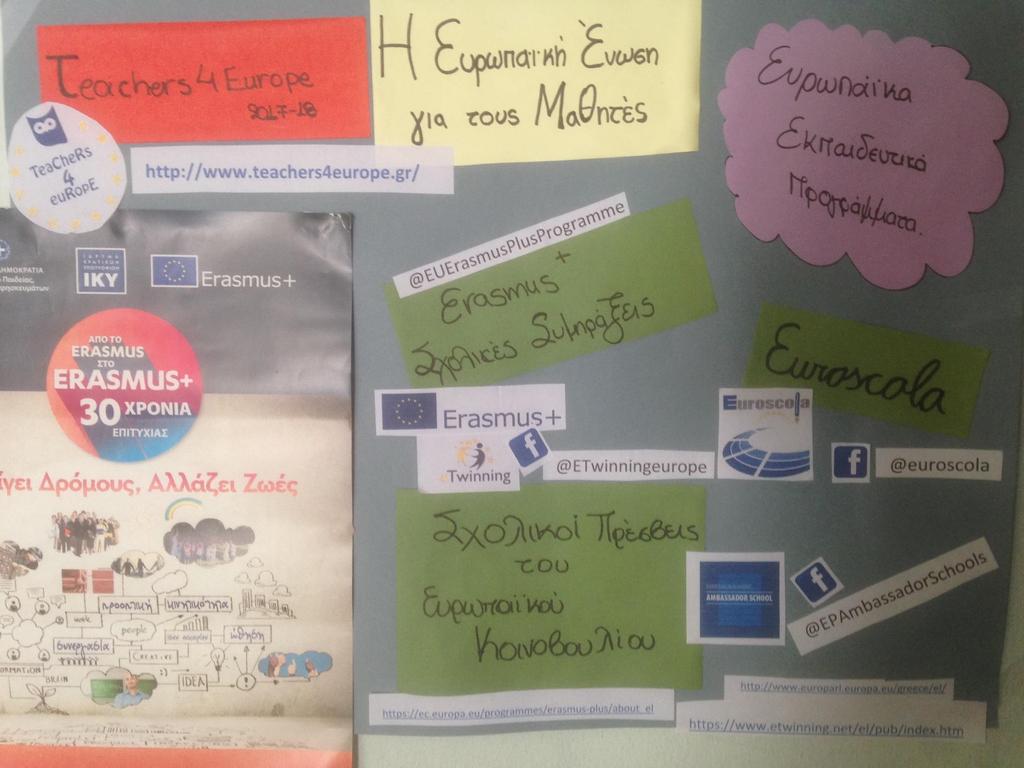 Teachers 4 Europe
2017-18
TeaCheRs
4
euRopE
http://www.teachers4europe.gr/
Η Ευρωπαϊκή Ένωση
για τους Μαθητές
Ευρωπαϊκα
Εκπαιδευτικά
Προγράμματα.
ΙΔΡΥΜΑ
ΚΡΑΤΙΚΩΝ
ΥΠΟΤΡΟΦΙΩΝ
ΙΚΥ
Erasmus+
ΑΠΟ ΤΟ
ERASMUS
ΣΤΟ
ERASMUS+
30 ΧΡΟΝΙΑ
ΕΠΙΤΥΧΙΑΣ
Δρόμους, Αλλάζει Ζωές
προοπτική
κινητικότητα
people
συνεργασία
ώθηση
CREATIVE
BRAIN
IDEA
@EUErasmusPlusProgramme
Erasmus +
Σχολικές Συμπράξεις
Erasmus+
eTwinning
f
@ETwinningeurope
Euroscola
Euroscola
f
@euroscola
Σχολικοί Πρέσβεις
του
Ευρωπαϊκού
Κοινοβουλίου
AMBASSADOR SCHOOL
f
@EPAmbassadorSchools
https://ec.europa.eu/programmes/erasmus-plus/about_el
http://www.europarl.europa.eu/greece/el/
https://www.etwinning.net/el/pub/index.htm